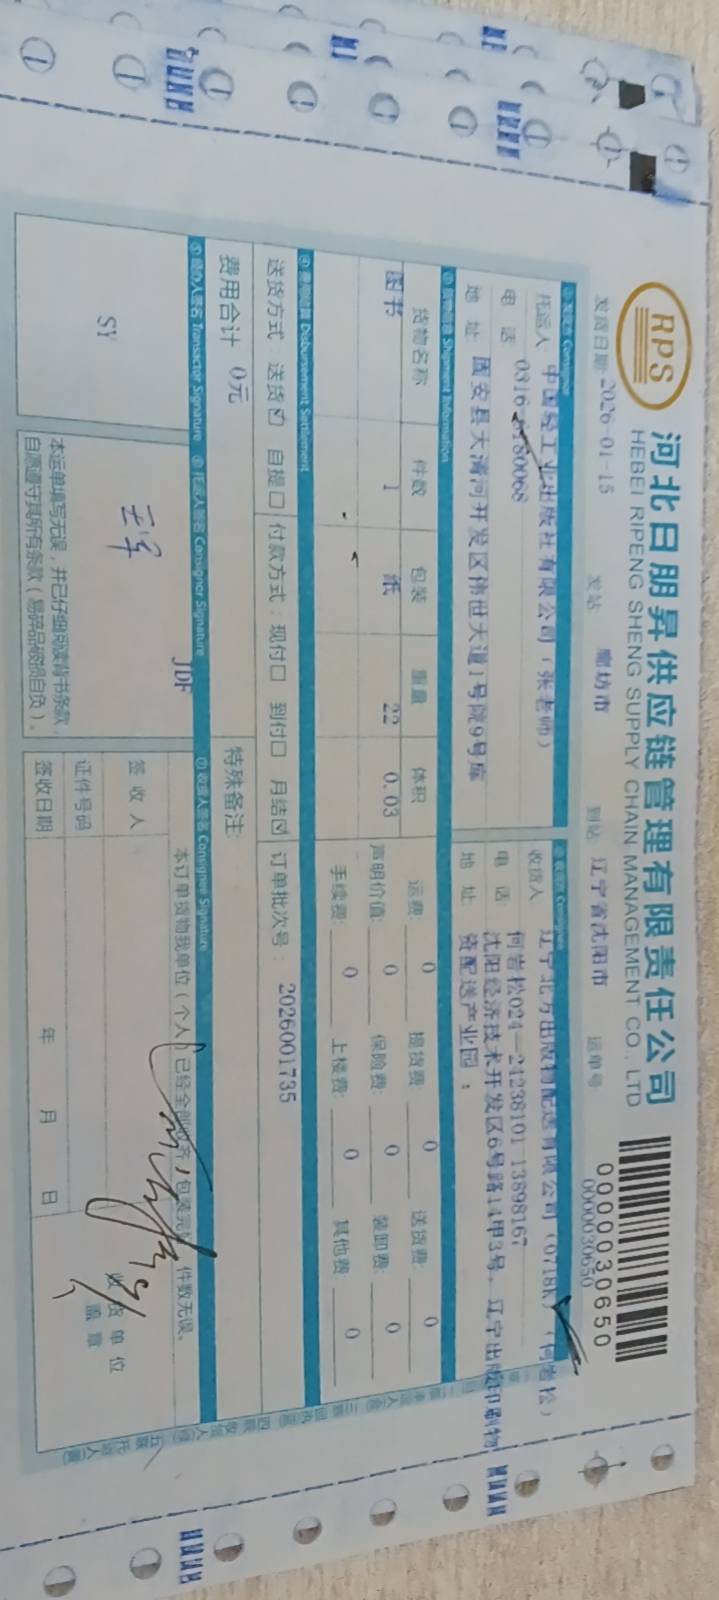 RPS
河北日朋昇供应链管理有限责任公司
HEBEI RIPENG SHENG SUPPLY CHAIN MANAGEMENT CO., LTD
0000030650
发货日期 2026-01-15 发站 廊坊市 到站 辽宁省沈阳市 运单号 0000030650
① 发货方 Consignor
托运人 中国轻工业出版社有限公司(张老师)
电 话 0316-6180068
地 址 固安县大清河开发区伟世大道1号院9号库
② 收货方 Consignee
收货人 辽宁北方出版物配送有限公司(0718K)(何岩松)
电 话 何岩松024—24238101 13898167
地 址 沈阳经济技术开发区6号路14甲3号,辽宁出版印刷物
资配送产业园;
③ 货物信息 Shipment Information
货物名称 件数 包装 重量 体积
图书 1 纸 22 0.03
运费: 0 提货费: 0 送货费: 0
声明价值: 0 保险费: 0 装卸费: 0
手续费: 0 上楼费: 0 其他费: 0
④ 费用结算 Disbursement Settlement
送货方式 送货☑ 自提口 付款方式:现付口 到付口 月结☑ 订单批次号: 2026001735
费用合计 0元 特殊备注:
⑤ 经办人签名 Transactor Signature ⑥ 托运人签名 Consignor Signature ⑦ 收货人签名 Consignee Signature
SY
JDF
本运单填写无误,并已仔细阅读背书条款,
自愿遵守其所有条款(易碎品破损自负)。
本订单货物我单位(个人)已经全部收齐,包装完好,件数无误。
签 收 人
证件号码
签收日期 年 月 日
收 货 单 位
盖 章